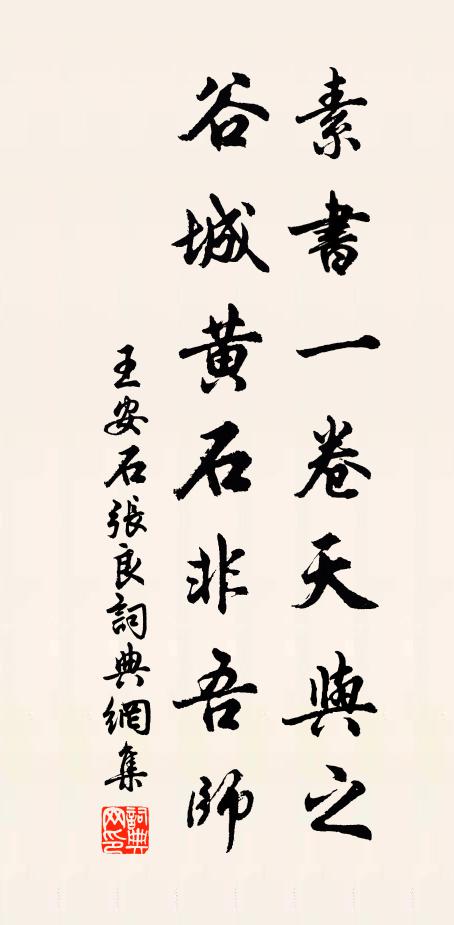 素書一卷天與之
谷城黄石非吾師
王安石張良詞典網集
詞典
网印